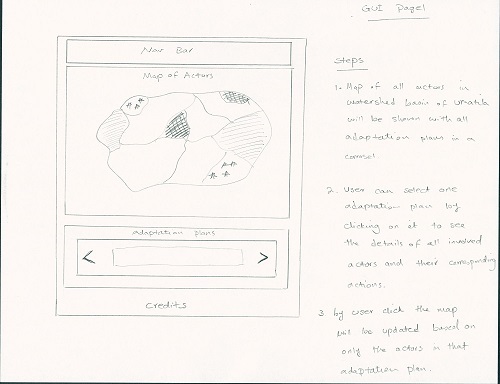 GUI Page1
Nav Bar
Map of Actors
Adaptation Plans
<
>
Credits
Steps
1. Map of all actors in
watershed basin of Umatila
will be shown with all
adaptation plans in a
carosel
2. User can select one
adaptation plan by
clicking on it to see
the details of all involved
actors and their corresponding
actions.
3. by user click the map
will be updated based on
only the actors in that
adaptation plan.